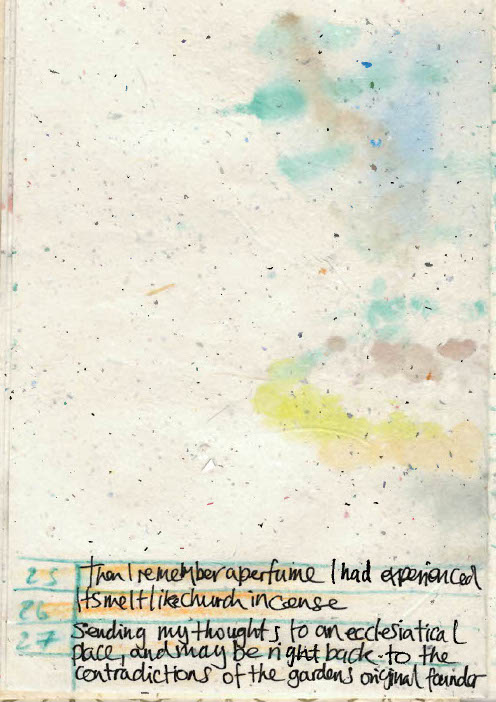 25 then I remember a perfume I had experienced
26 It smelt like church incense
27 Sending my thoughts to an ecclesiatical
place, and may be right back to the
contradictions of the gardens original foundor